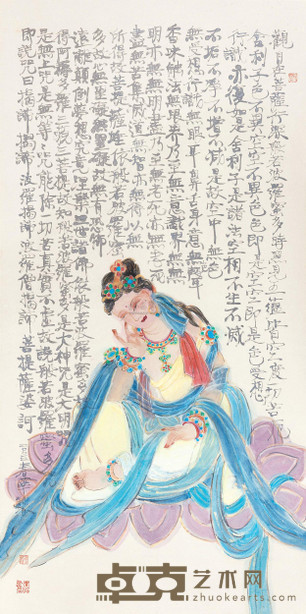 觀自在菩薩行深般若波羅蜜多時照見五蘊皆空度一切苦厄
舍利子色不異空空不異色色即是空空即是色受想
行識亦復如是舍利子是諸法空相不生不滅
不垢不淨不增不減是故空中無色
無受想行識無眼耳鼻舌身意無色聲
香味觸法無眼界乃至無意識界無無
明亦無無明盡乃至無老死亦無老死
盡無苦集滅道無智亦無得以無
所得故菩提薩埵依般若波羅蜜
多故心無罣礙無罣礙故無有恐怖
遠離顛倒夢想究竟涅槃三世諸佛依般若波羅蜜多故
得阿耨多羅三藐三菩提故知般若波羅蜜多是大神咒是大明咒
是無上咒是無等等咒能除一切苦真實不虛故說般若波羅蜜多咒
即說咒曰揭諦揭諦波羅揭諦波羅僧揭諦菩提薩婆訶
卓克艺术网
www.zhuokearts.com